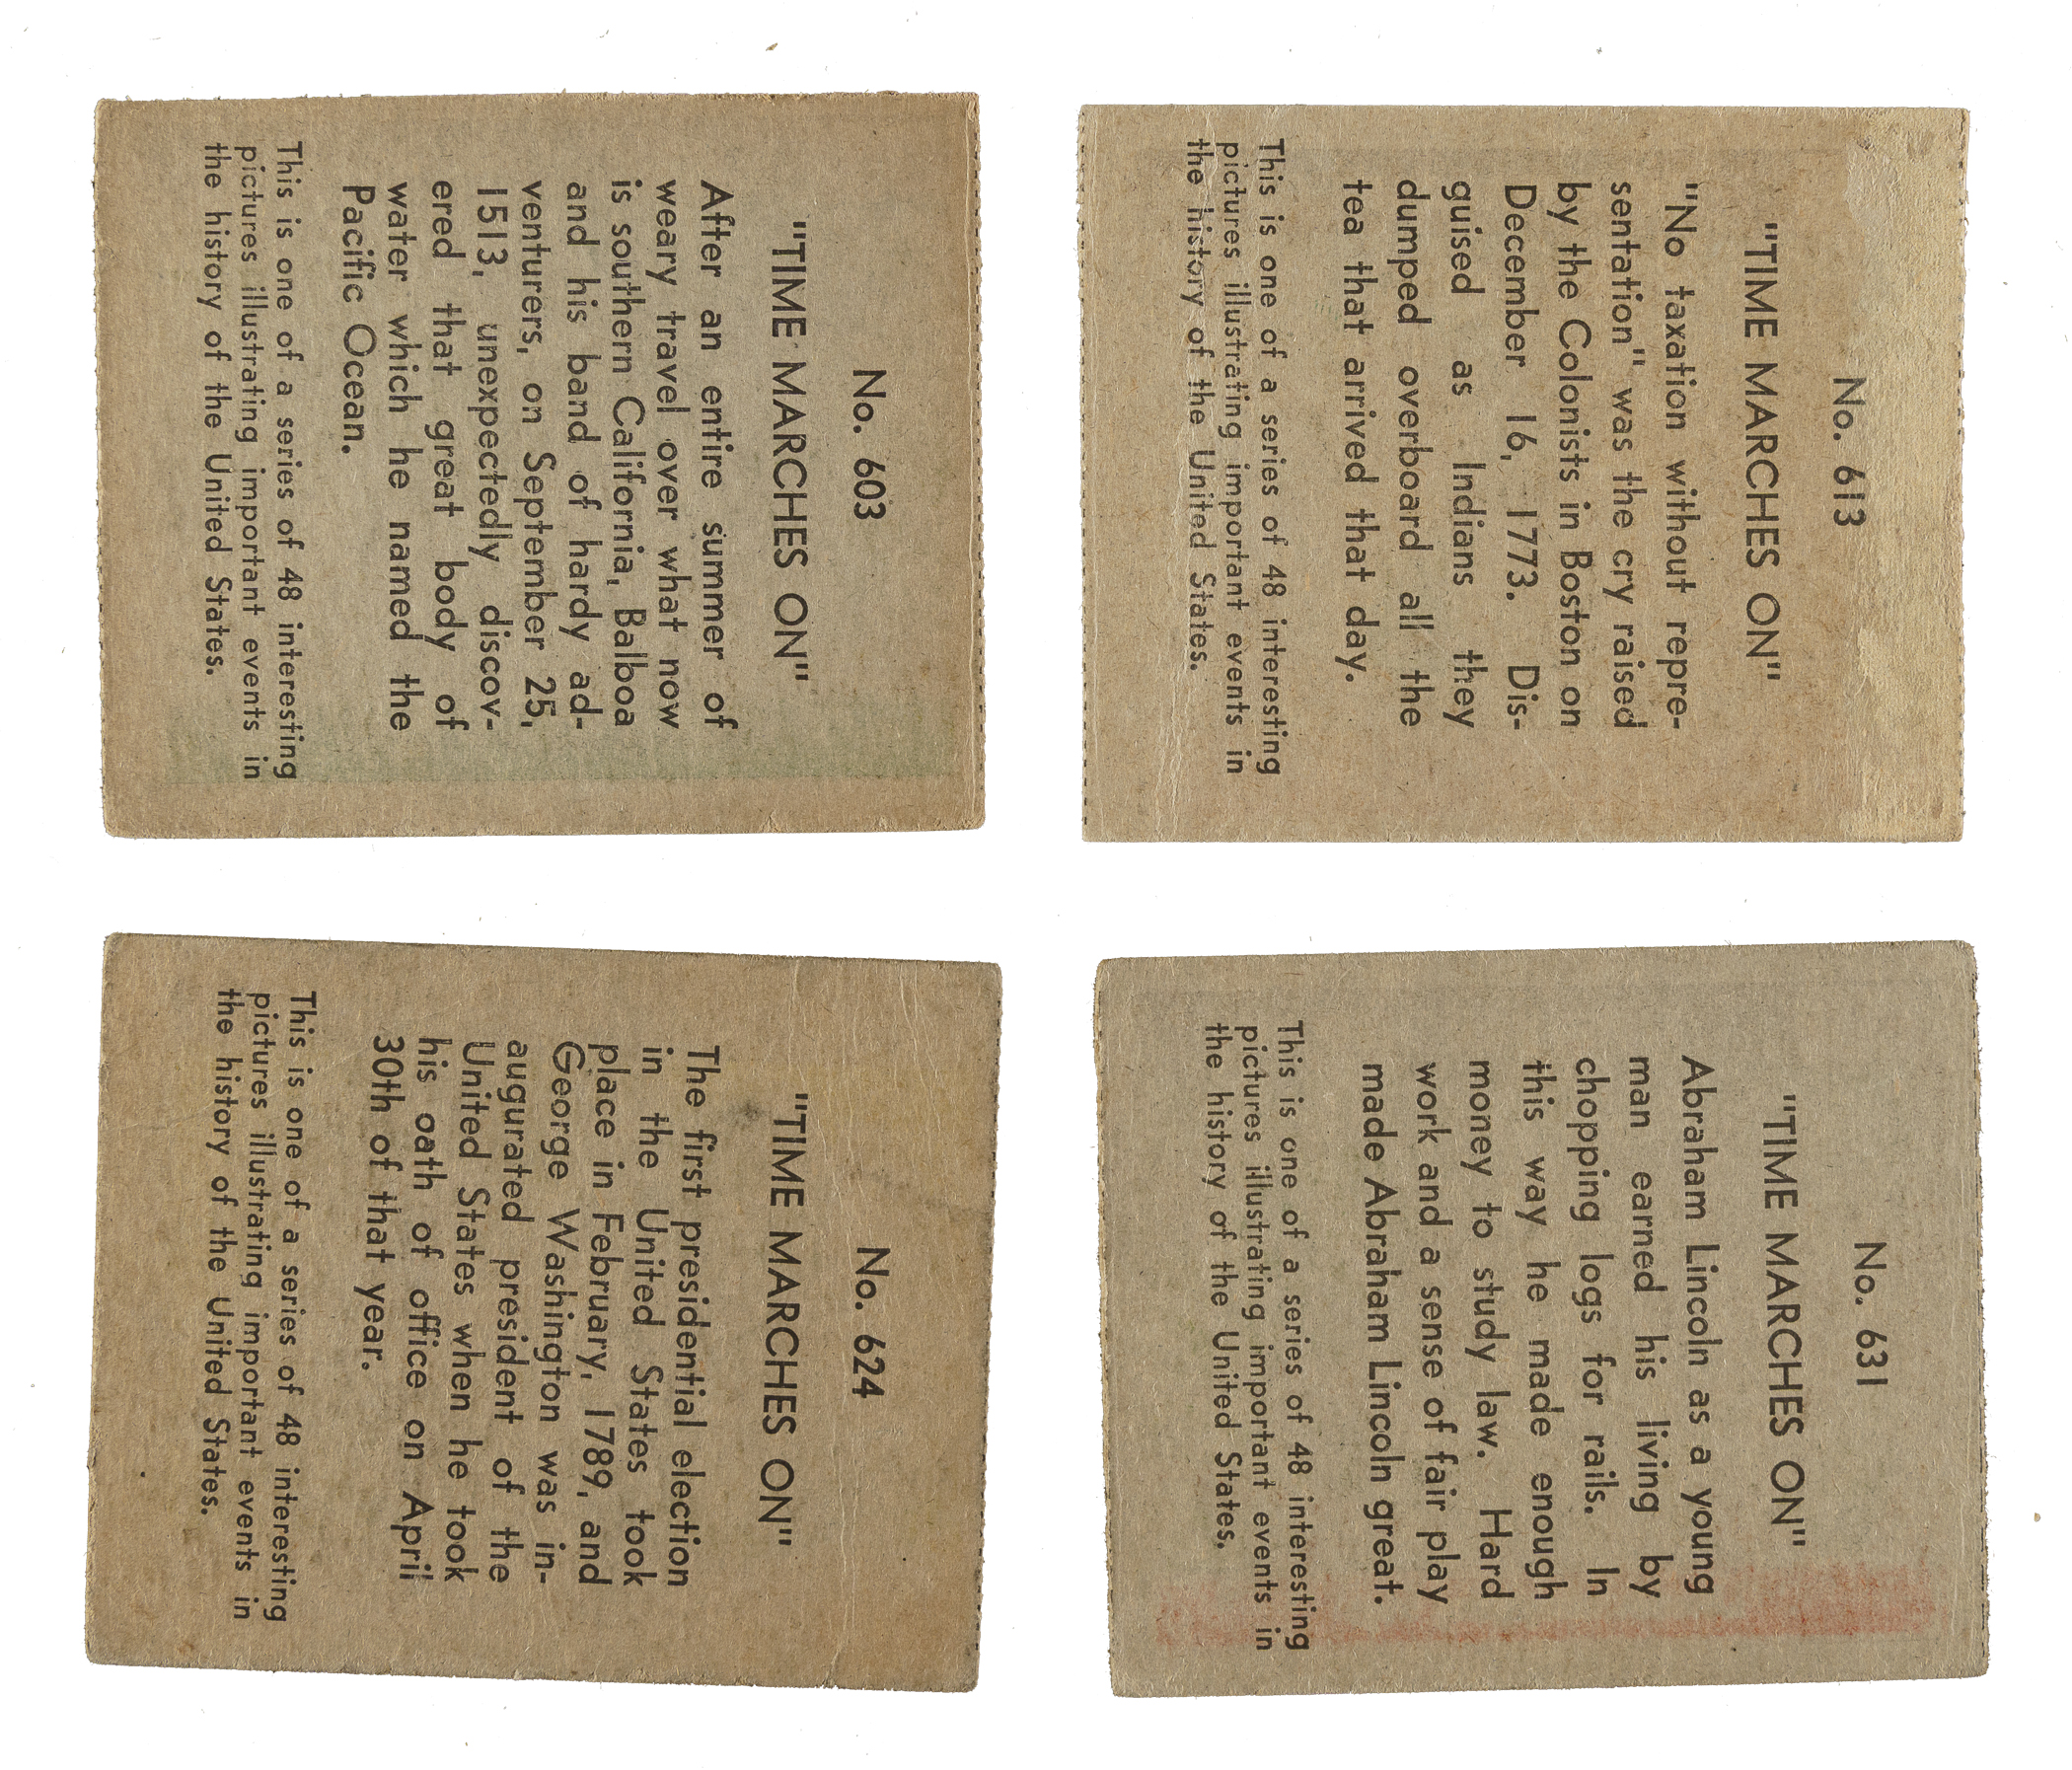 No. 603
"TIME MARCHES ON"
After an entire summer of
weary travel over what now
is southern California, Balboa
and his band of hardy ad-
venturers, on September 25,
1513, unexpectedly discov-
ered that great body of
water which he named the
Pacific Ocean.
This is one of a series of 48 interesting
pictures illustrating important events in
the history of the United States.
No. 613
"TIME MARCHES ON"
"No taxation without repre-
sentation" was the cry raised
by the Colonists in Boston on
December 16, 1773. Dis-
guised as Indians they
dumped overboard all the
tea that arrived that day.
This is one of a series of 48 interesting
pictures illustrating important events in
the history of the United States.
No. 624
"TIME MARCHES ON"
The first presidential election
in the United States took
place in February, 1789, and
George Washington was in-
augurated president of the
United States when he took
his oath of office on April
30th of that year.
This is one of a series of 48 interesting
pictures illustrating important events in
the history of the United States.
No. 631
"TIME MARCHES ON"
Abraham Lincoln as a young
man earned his living by
chopping logs for rails. In
this way he made enough
money to study law. Hard
work and a sense of fair play
made Abraham Lincoln great.
This is one of a series of 48 interesting
pictures illustrating important events in
the history of the United States.